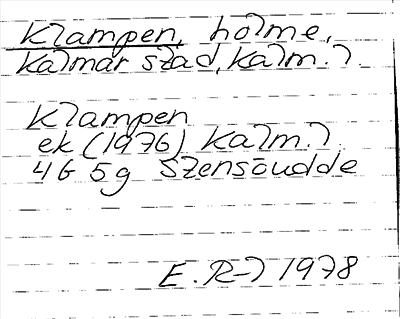 Klampen, holme,
Kalmar stad, Kalm. l.
Klampen
ek (1976) Kalm. l.
4G 5g Stensöudde
E. R-l 1978